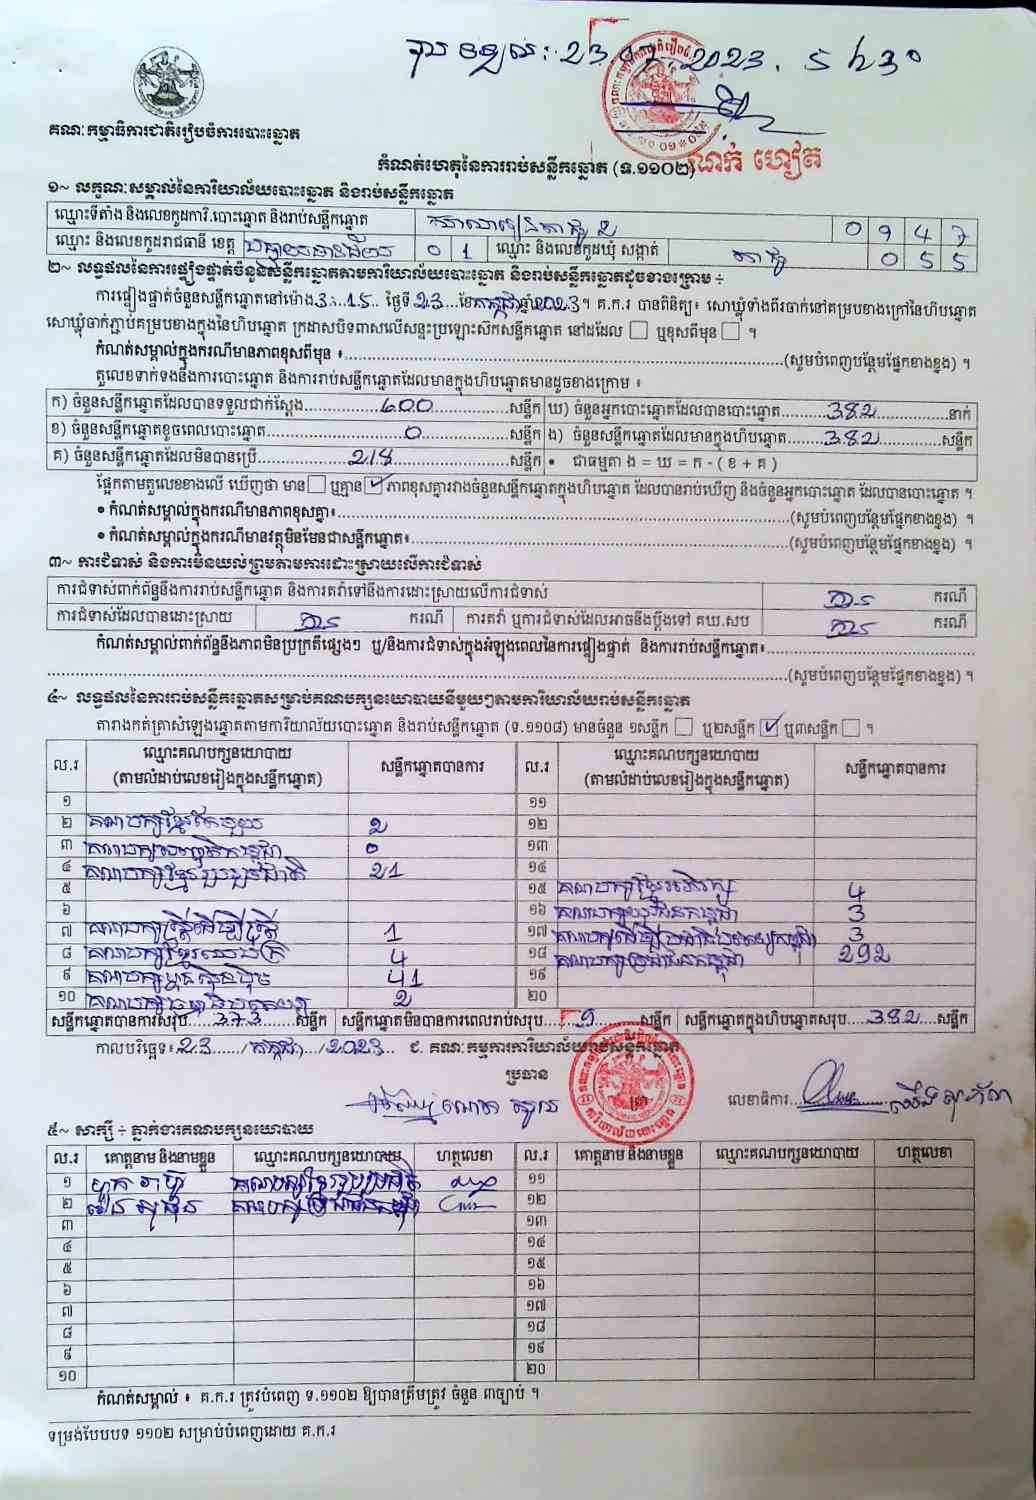 23.07.2023. 5 h 30
គណៈកម្មាធិការជាតិរៀបចំការបោះឆ្នោត
ណក់ ហៀត
កំណត់ហេតុនៃការរាប់សន្លឹកឆ្នោត (ទ.១១០២)
១~ លក្ខណៈសម្គាល់នៃការិយាល័យបោះឆ្នោត និងរាប់សន្លឹកឆ្នោត
ឈ្មោះទីតាំង និងលេខកូដការិ.បោះឆ្នោត និងរាប់សន្លឹកឆ្នោត 0 9 4 7
ឈ្មោះ និងលេខកូដរាជធានី ខេត្ត បន្ទាយមានជ័យ 0 1 ឈ្មោះ និងលេខកូដឃុំ សង្កាត់ 0 5 5
២~ លទ្ធផលនៃការផ្ទៀងផ្ទាត់ចំនួនសន្លឹកឆ្នោតតាមការិយាល័យបោះឆ្នោត និងរាប់សន្លឹកឆ្នោតដូចខាងក្រោម ÷
ការផ្ទៀងផ្ទាត់ចំនួនសន្លឹកឆ្នោតនៅម៉ោង 3:15 ថ្ងៃទី 23 ខែ កក្កដា ឆ្នាំ 2023 ។ គ.ក.រ បានពិនិត្យ៖ សោឃ្លុំទាំងពីរចាក់នៅគម្របខាងក្រៅនៃហិបឆ្នោត
សោឃ្លុំចាក់ភ្ជាប់គម្របខាងក្នុងនៃហិបឆ្នោត ក្រដាសបិទពាសលើសន្ទះប្រឡោះសឹកសន្លឹកឆ្នោត នៅដដែល ☐ ឬខុសពីមុន ☐ ។
កំណត់សម្គាល់ក្នុងករណីមានភាពខុសពីមុន ៖ (សូមបំពេញបន្ថែមផ្នែកខាងខ្នង) ។
តួលេខទាក់ទងនឹងការបោះឆ្នោត និងការរាប់សន្លឹកឆ្នោតដែលមានក្នុងហិបឆ្នោតមានដូចខាងក្រោម ៖
ក) ចំនួនសន្លឹកឆ្នោតដែលបានទទួលជាក់ស្តែង 600 សន្លឹក ឃ) ចំនួនអ្នកបោះឆ្នោតដែលបានបោះឆ្នោត 382 នាក់
ខ) ចំនួនសន្លឹកឆ្នោតខូចពេលបោះឆ្នោត 0 សន្លឹក ង) ចំនួនសន្លឹកឆ្នោតដែលមានក្នុងហិបឆ្នោត 382 សន្លឹក
គ) ចំនួនសន្លឹកឆ្នោតដែលមិនបានប្រើ 218 សន្លឹក • ជាធម្មតា ង = ឃ = ក - ( ខ + គ )
ផ្អែកតាមតួលេខខាងលើ ឃើញថា មាន ☐ ឬគ្មាន ☑ ភាពខុសគ្នារវាងចំនួនសន្លឹកឆ្នោតក្នុងហិបឆ្នោត ដែលបានរាប់ឃើញ និងចំនួនអ្នកបោះឆ្នោត ដែលបានបោះឆ្នោត ។
• កំណត់សម្គាល់ក្នុងករណីមានភាពខុសគ្នា៖ (សូមបំពេញបន្ថែមផ្នែកខាងខ្នង) ។
• កំណត់សម្គាល់ក្នុងករណីមានវត្ថុមិនមែនជាសន្លឹកឆ្នោត៖ (សូមបំពេញបន្ថែមផ្នែកខាងខ្នង) ។
៣~ ការជំទាស់ និងការមិនយល់ព្រមតាមការដោះស្រាយលើការជំទាស់
ការជំទាស់ពាក់ព័ន្ធនឹងការរាប់សន្លឹកឆ្នោត និងការតវ៉ាទៅនឹងការដោះស្រាយលើការជំទាស់ គ្មាន ករណី
ការជំទាស់ដែលបានដោះស្រាយ គ្មាន ករណី ការតវ៉ា ឬការជំទាស់ដែលអាចនឹងប្តឹងទៅ គឃ.សប គ្មាន ករណី
កំណត់សម្គាល់ពាក់ព័ន្ធនឹងភាពមិនប្រក្រតីផ្សេងៗ ឬ/និងការជំទាស់ក្នុងអំឡុងពេលនៃការផ្ទៀងផ្ទាត់ និងការរាប់សន្លឹកឆ្នោត៖
(សូមបំពេញបន្ថែមផ្នែកខាងខ្នង) ។
៤~ លទ្ធផលនៃការរាប់សន្លឹកឆ្នោតសម្រាប់គណបក្សនយោបាយនីមួយៗតាមការិយាល័យរាប់សន្លឹកឆ្នោត
តារាងកត់ត្រាសំឡេងឆ្នោតតាមការិយាល័យបោះឆ្នោត និងរាប់សន្លឹកឆ្នោត (ទ.១១០៨) មានចំនួន ១សន្លឹក ☐ ឬ២សន្លឹក ☑ ឬ៣សន្លឹក ☐ ។
ល.រ ឈ្មោះគណបក្សនយោបាយ (តាមលំដាប់លេខរៀងក្នុងសន្លឹកឆ្នោត) សន្លឹកឆ្នោតបានការ ល.រ ឈ្មោះគណបក្សនយោបាយ (តាមលំដាប់លេខរៀងក្នុងសន្លឹកឆ្នោត) សន្លឹកឆ្នោតបានការ
១ ១១
២ គណបក្សខ្មែរតែមួយ 2 ១២
៣ 0 ១៣
៤ គណបក្សខ្មែររួបរួមជាតិ 21 ១៤
៥ ១៥ គណបក្សខ្មែរអភិរក្ស 4
៦ ១៦ គណបក្សយុវជនកម្ពុជា 3
៧ គណបក្សស្ត្រីដើម្បីស្ត្រី 1 ១៧ 3
៨ គណបក្សខ្មែរឈប់ក្រ 4 ១៨ គណបក្សប្រជាជនកម្ពុជា 292
៩ គណបក្សហ្វ៊ុនស៊ិនប៉ិច 41 ១៩
១០ 2 ២០
សន្លឹកឆ្នោតបានការសរុប 373 សន្លឹក សន្លឹកឆ្នោតមិនបានការពេលរាប់សរុប 9 សន្លឹក សន្លឹកឆ្នោតក្នុងហិបឆ្នោតសរុប 382 សន្លឹក
កាលបរិច្ឆេទ៖ 23 / កក្កដា / 2023 ជ. គណៈកម្មការការិយាល័យរាប់សន្លឹកឆ្នោត
ប្រធាន
លេខាធិការ
៥~ សាក្សី ÷ ភ្នាក់ងារគណបក្សនយោបាយ
ល.រ គោត្តនាម និងនាមខ្លួន ឈ្មោះគណបក្សនយោបាយ ហត្ថលេខា ល.រ គោត្តនាម និងនាមខ្លួន ឈ្មោះគណបក្សនយោបាយ ហត្ថលេខា
១ គណបក្សខ្មែររួបរួមជាតិ ១១
២ គណបក្សប្រជាជនកម្ពុជា ១២
៣ ១៣
៤ ១៤
៥ ១៥
៦ ១៦
៧ ១៧
៨ ១៨
៩ ១៩
១០ ២០
កំណត់សម្គាល់ ៖ គ.ក.រ ត្រូវបំពេញ ទ.១១០២ ឱ្យបានត្រឹមត្រូវ ចំនួន ៣ច្បាប់ ។
ទម្រង់បែបបទ ១១០២ សម្រាប់បំពេញដោយ គ.ក.រ